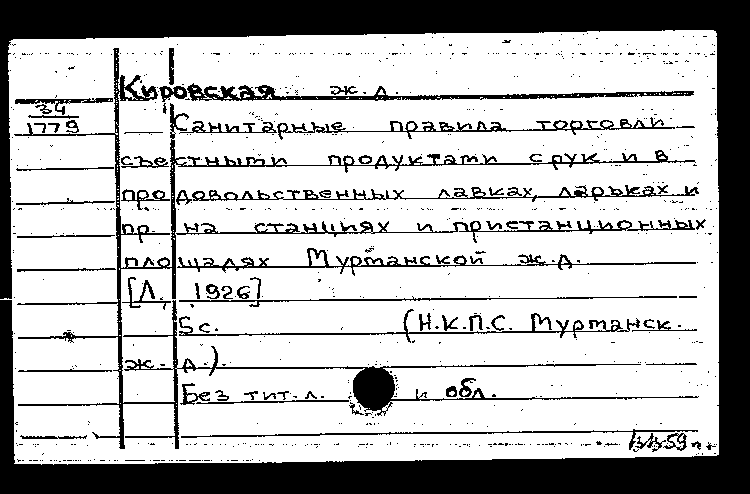 Кировская ж.д.
34
1779
Санитарные правила торговли
съестными продуктами с рук и в
продовольственных лавках, ларьках и
пр. на станциях и пристанционных
площадях Мурманской ж.д.
[Л., 1926]
5 с. (Н.К.П.С. Мурманск.
ж.д.).
Без тит.л. и обл.